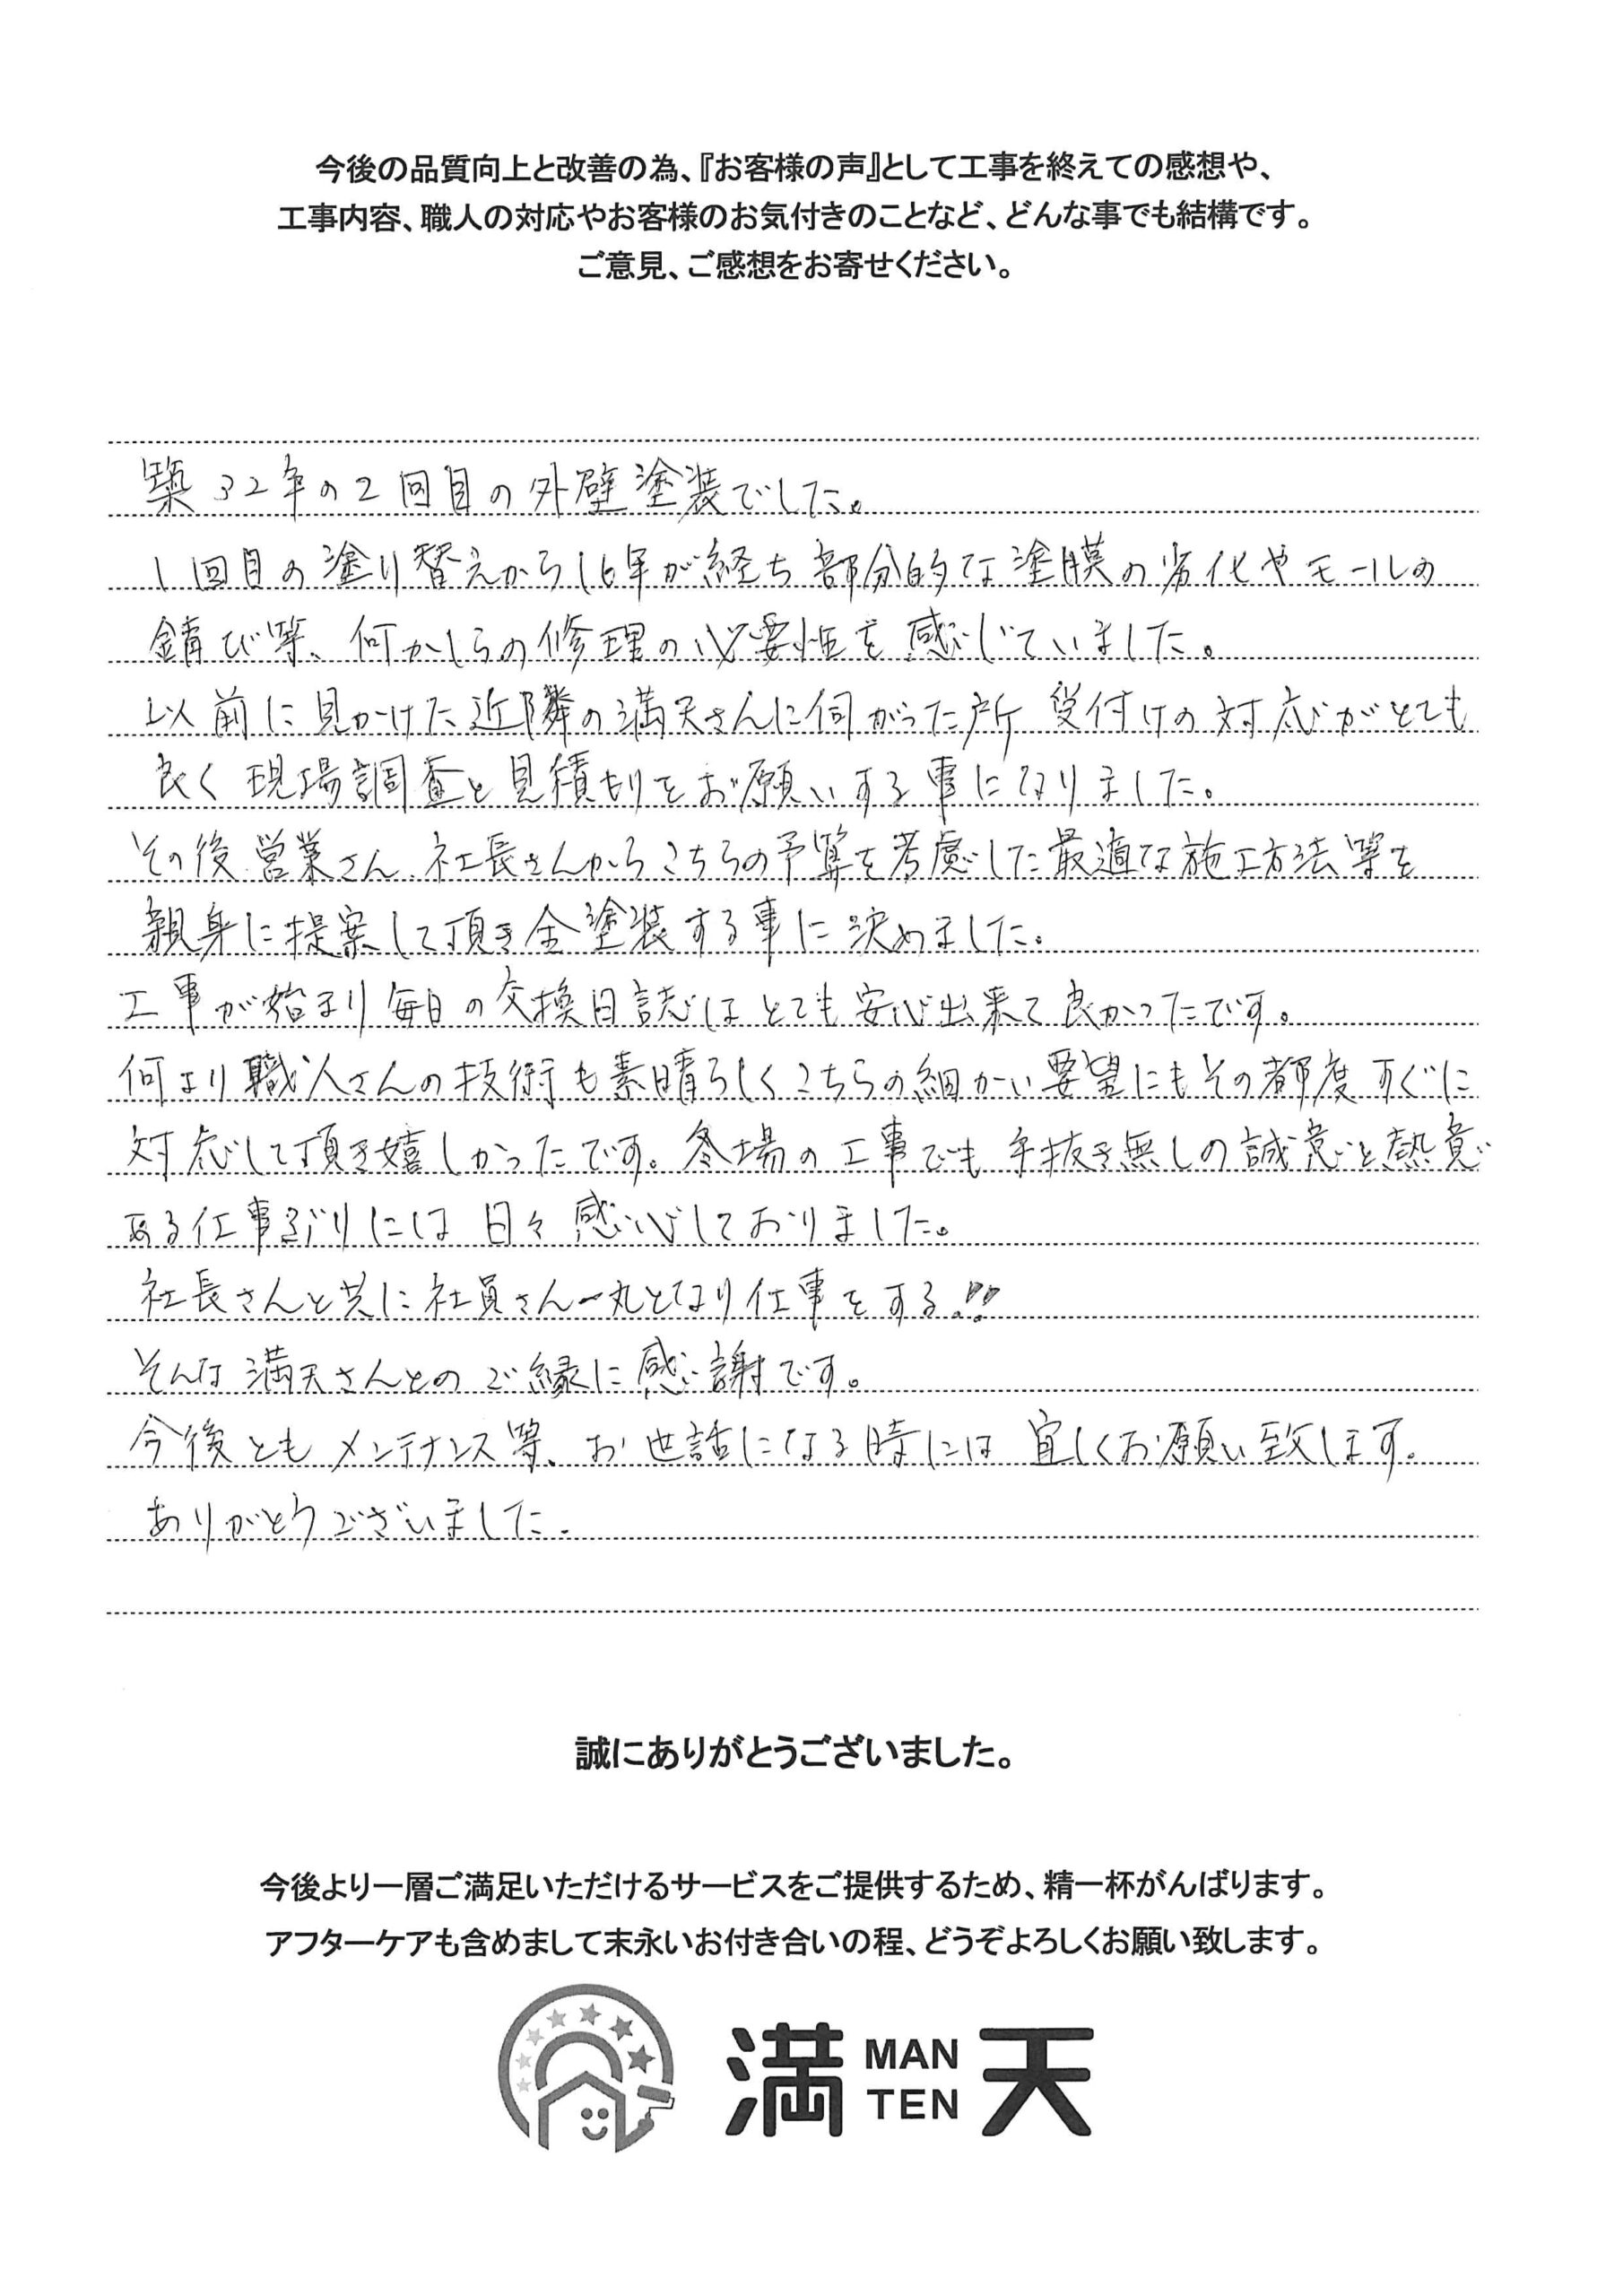 今後の品質向上と改善の為、『お客様の声』として工事を終えての感想や、
工事内容、職人の対応やお客様のお気付きのことなど、どんな事でも結構です。
ご意見、ご感想をお寄せください。
築32年の2回目の外壁塗装でした。
1回目の塗り替えから16年が経ち部分的な塗膜の劣化やモールの
錆び等、何かしらの修理の必要性を感じていました。
以前に見かけた近隣の満天さんに伺がった所 受付けの対応がとても
良く現場調査と見積もりをお願いする事になりました。
その後営業さん、社長さんからこちらの予算を考慮した最適な施工方法等を
親身に提案して頂き全塗装する事に決めました。
工事が始まり毎日の交換日誌はとても安心出来て良かったです。
何より職人さんの技術も素晴らしくこちらの細かい要望にもその都度すぐに
対応して頂き嬉しかったです。冬場の工事でも手抜き無しの誠意と熱意
ある仕事ぶりには日々感心しておりました。
社長さんと共に社員さん一丸となり仕事をする!!
そんな満天さんとのご縁に感謝です。
今後ともメンテナンス等、お世話になる時には宜しくお願い致します。
ありがとうございました。
誠にありがとうございました。
今後より一層ご満足いただけるサービスをご提供するため、精一杯がんばります。
アフターケアも含めまして末永いお付き合いの程、どうぞよろしくお願い致します。
満 MAN TEN 天